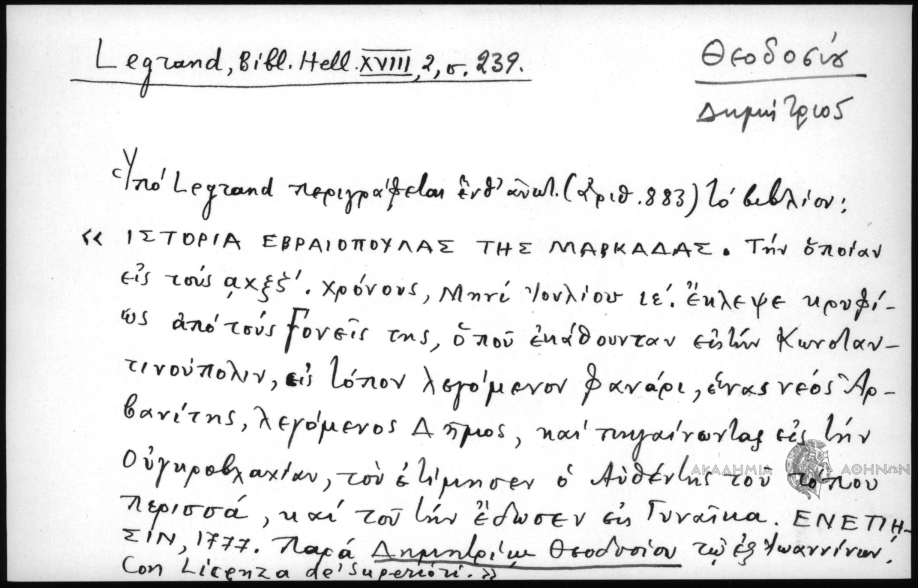 Legrand, Bibl. Hell. XVIII, 2, σ. 239.
Θεοδοσίου
Δημήτριος
Ὑπό Legrand περιγράφεται ἐνθ' ἀνωτ. (ἀριθ. 883) τό βιβλίον:
« ΙΣΤΟΡΙΑ ΕΒΡΑΙΟΠΟΥΛΑΣ ΤΗΣ ΜΑΡΚΑΔΑΣ. Τήν ὁποίαν
εἰς τούς αχξξ'. χρόνους, Μηνί Ἰουλίου ιε'. ἔκλεψε κρυφί-
ως ἀπό τούς Γονεῖς της, ὁποῦ ἐκάθουνταν εἰς τήν Κωνσταν-
τινούπολιν, εἰς τόπον λεγόμενον Φανάρι, ἕνας νεός Ἀρ-
βανίτης, λεγόμενος Δῆμος, καί πηγαίνωντας εἰς τήν
Οὐγκροβλαχίαν, τόν ἐτίμησεν ὁ Αὐθέντης τοῦ τόπου
περισσά, καί τοῦ τήν ἔδωσεν εἰς Γυναῖκα. ΕΝΕΤΙΗ-
ΣΙΝ, 1777. Παρά Δημητρίῳ Θεοδοσίου τῷ ἐξ Ἰωαννίνων.
Con Licenza de' Superiori. »
ΑΚΑΔΗΜΙΑ ΑΘΗΝΩΝ